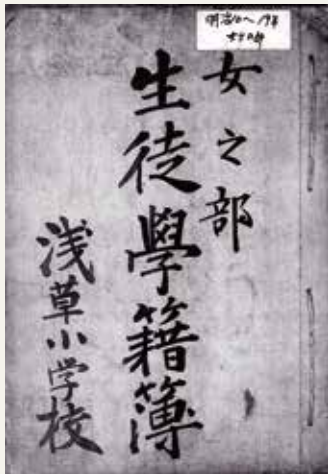 女之部
生徒學籍簿
浅草小学校